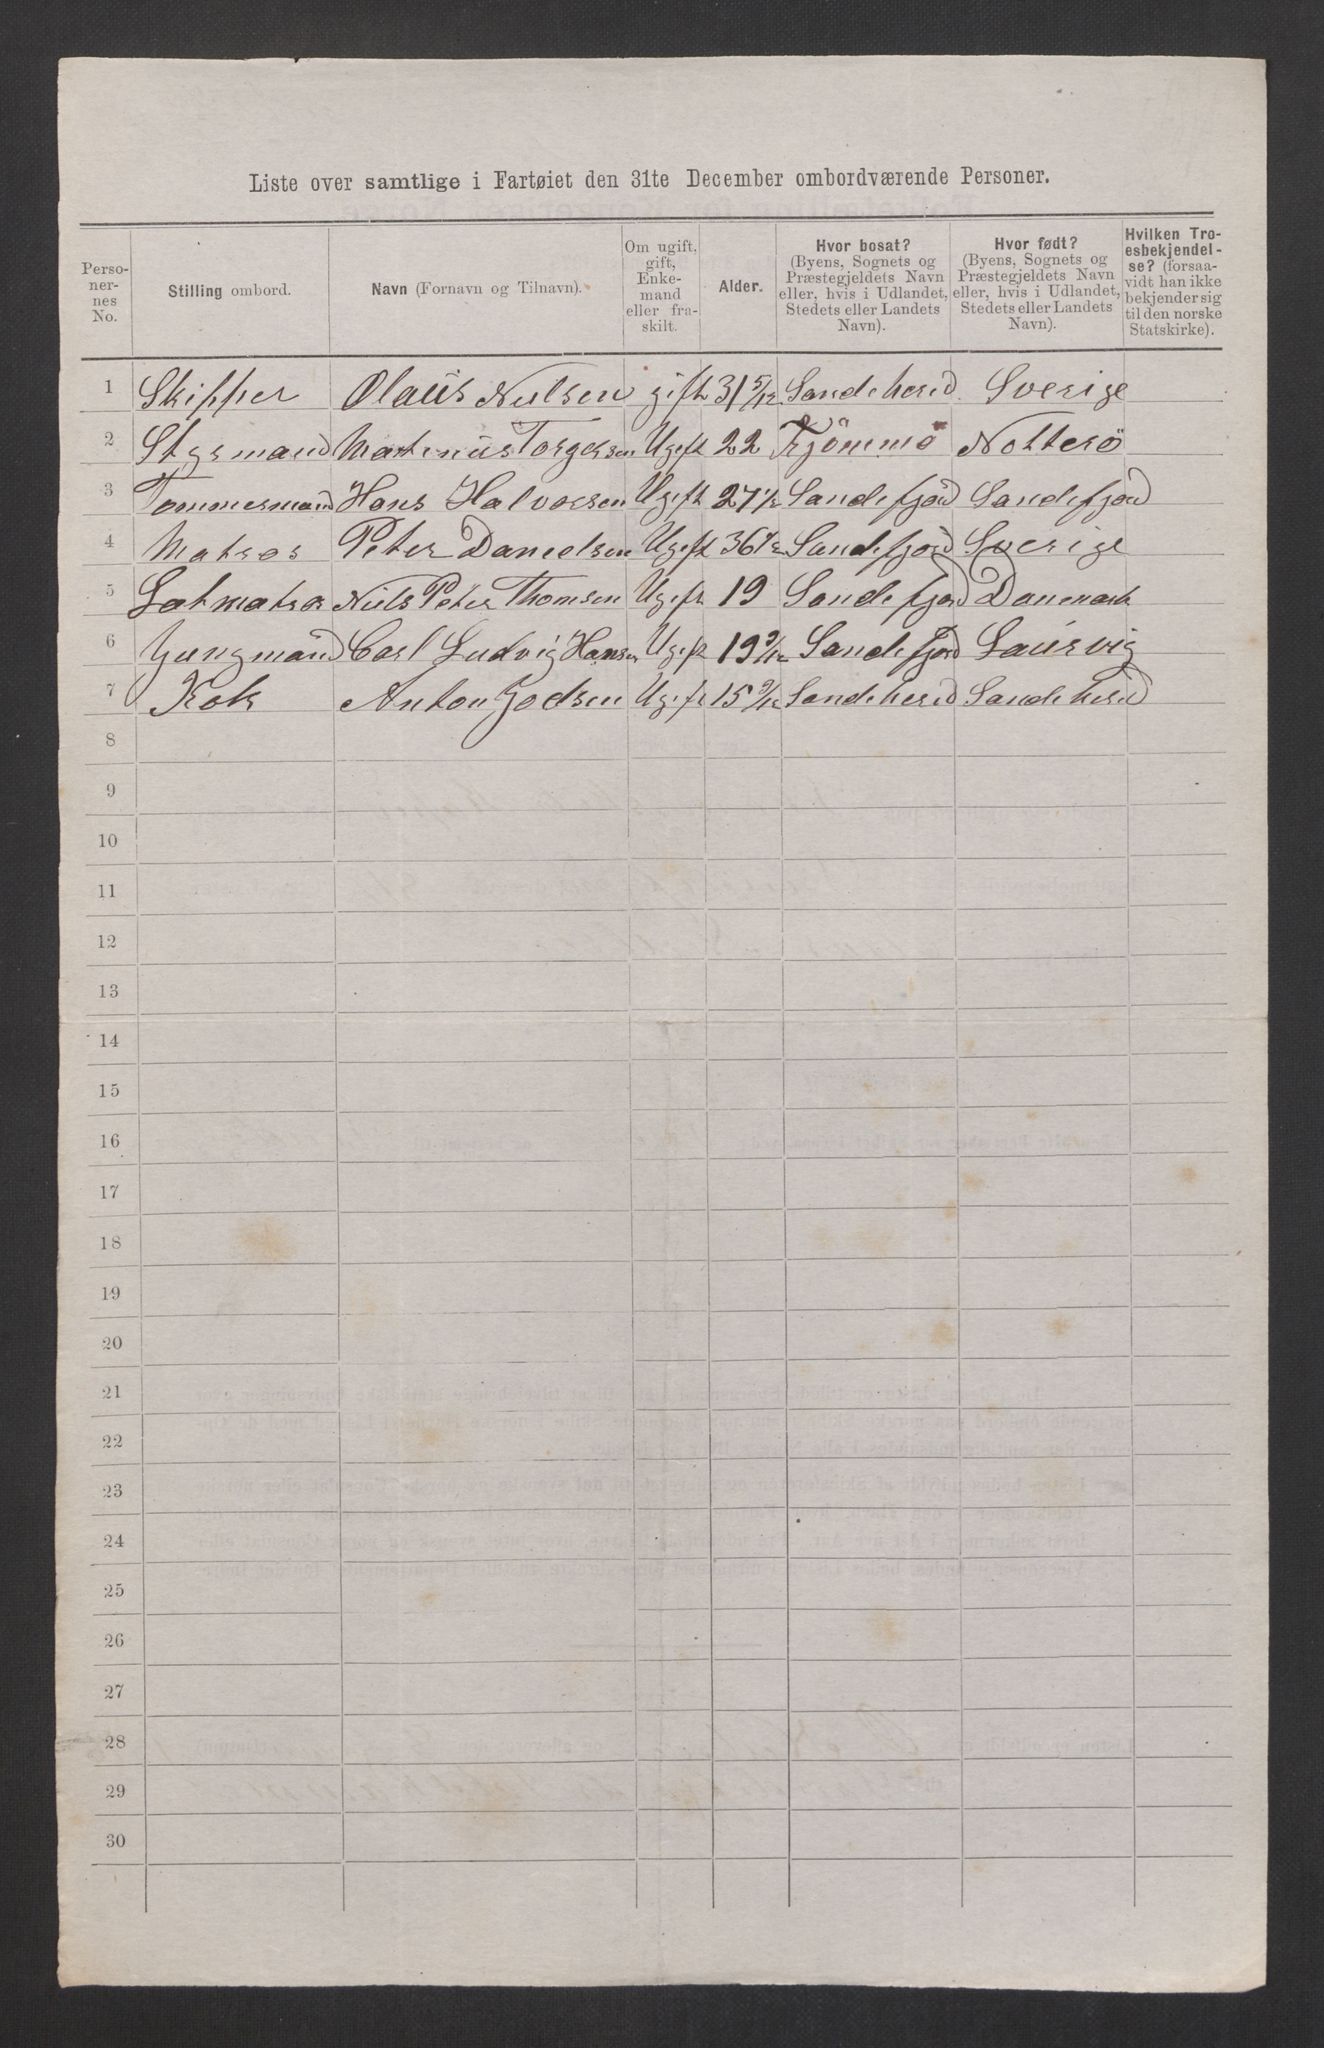 Liste over samtlige i Fartøiet den 31te December ombordværende Personer.
Perso-
ner-
nes
No.
Stilling ombord.
Navn (Fornavn og Tilnavn).
Om ugift,
gift,
Enke-
mand
eller fra-
skilt.
Alder.
Hvor bosat?
(Byens, Sognets og
Præstegjeldets Navn
eller, hvis i Udlandet,
Stedets eller Landets
Navn).
Hvor født?
(Byens, Sognets og
Præstegjeldets Navn
eller, hvis i Udlandet,
Stedets eller Landets
Navn).
Hvilken Tro-
esbekjendel-
se? (forsaa-
vidt han ikke
bekjender sig
til den norske
Statskirke).
1 Skipper Olaus Nielsen gift 31 5/12 Sandeherid Sverige
2 Styrmand Martinius Torgersen Ugift 22 Tjömmö Notterö
3 Tommermand Hans Halvorsen Ugift 27 Sandefjord Sandefjord
4 Matros Peter Danielsen Ugift 36 Sandefjord Sverige
5 Letmatros Niels Peter Thomsen Ugift 19 Sandefjord Danemark
6 Yungmand Carl Ludvig Hansen Ugift 19 9/12 Sandefjord Laurvig
7 Kok Anton Jodsen Ugift 15 9/12 Sandeherid Sandeherid
8
9
10
11
12
13
14
15
16
17
18
19
20
21
22
23
24
25
26
27
28
29
30